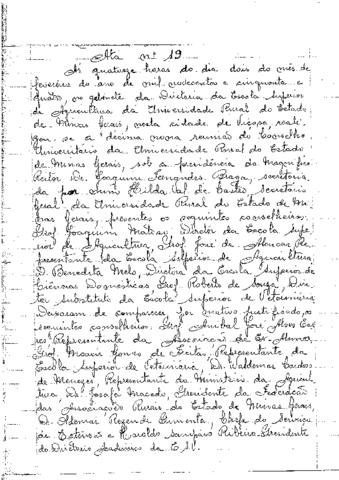 Ata nº 19
Às quatorze horas do dia dois do mês de
fevereiro do ano de mil novecentos e cinquenta e
quatro, no gabinete da Diretoria da Escola Superior
de Agricultura da Universidade Rural do Estado
de Minas Gerais, nesta cidade de Viçosa, reali-
zou-se a décima nona reunião do Conselho
Universitário da Universidade Rural do Estado
de Minas Gerais, sob a presidência do Magnífico
Reitor Dr. Joaquim Fernandes Braga, secretaria-
da por mim, Hilda de Castro, Secretária
Geral da Universidade Rural do Estado de Mi-
nas Gerais, presentes os seguintes conselheiros:
Prof. Joaquim Matoso, Diretor da Escola Supe-
rior de Agricultura, Prof. José de Alencar, Re-
presentante da Escola Superior de Agricultura,
D. Benedita Melo, Diretora da Escola Superior de
Ciências Domésticas, Prof. Roberto de Souza, Dire-
tor Substituto da Escola Superior de Veterinária.
Deixaram de comparecer, por motivo justificado, os
seguintes conselheiros: Prof. Anibal José Alves
Representante da Associação de Ex-Alunos,
Prof. Moacir Gomes de Freitas, Representante da
Escola Superior de Veterinária, Dr. Waldemar Cardoso
de Menezes, Representante do Ministério da Agricul-
tura, Dr. Josafá Macedo, Presidente da Federação
das Associações Rurais do Estado de Minas Gerais,
D. Ademar Rezende Pimenta, Chefe do Serviço
de Extensão e Haroldo Sampaio Ribeiro, Presidente
do Diretório Acadêmico da